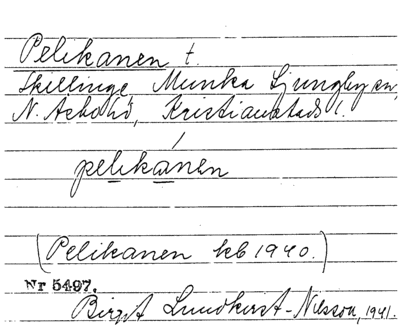 Pelikanen t.
Skillinge, Munka Ljungby sn,
N. Åsbo hd, Kristianstads l.
pelikánen
(Pelikanen kb 1940.)
Nr 5497.
Birgit Lundkvist-Nilsson, 1941.